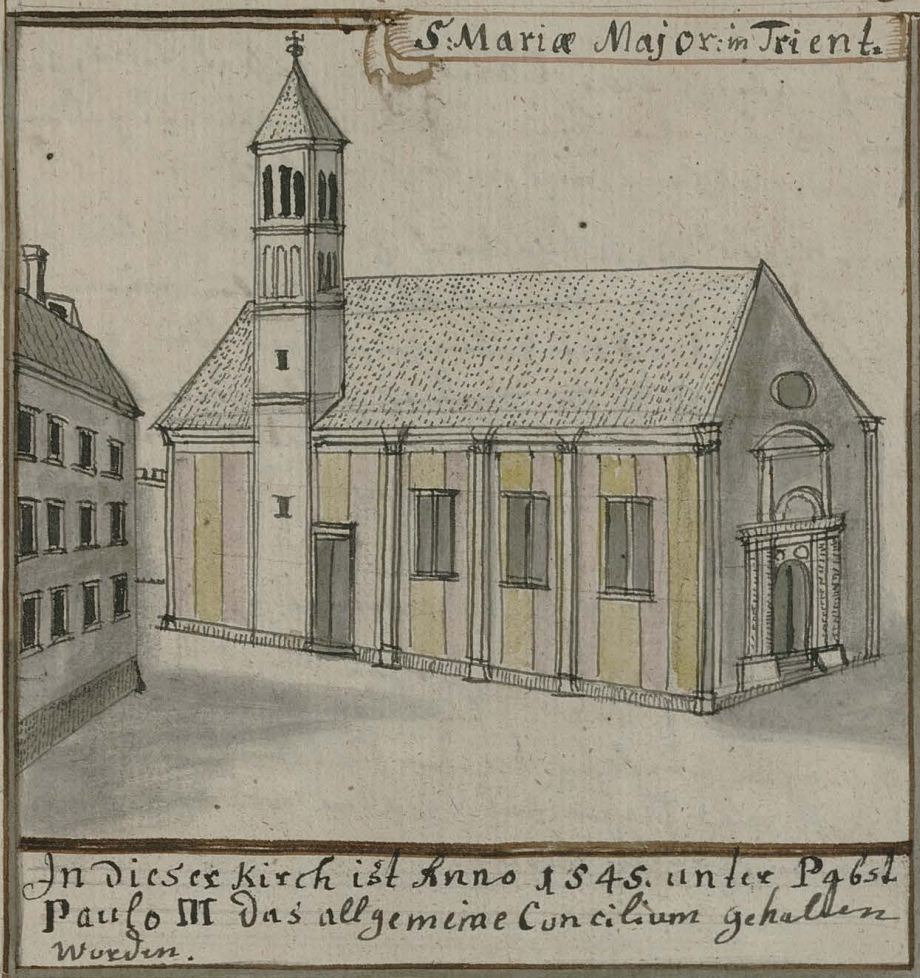 S: Mariæ Major: in Trient.
In dieser Kirch ist Anno 1545. unter Pabst
Paulo III das allgemeine Concilium gehalten
worden.